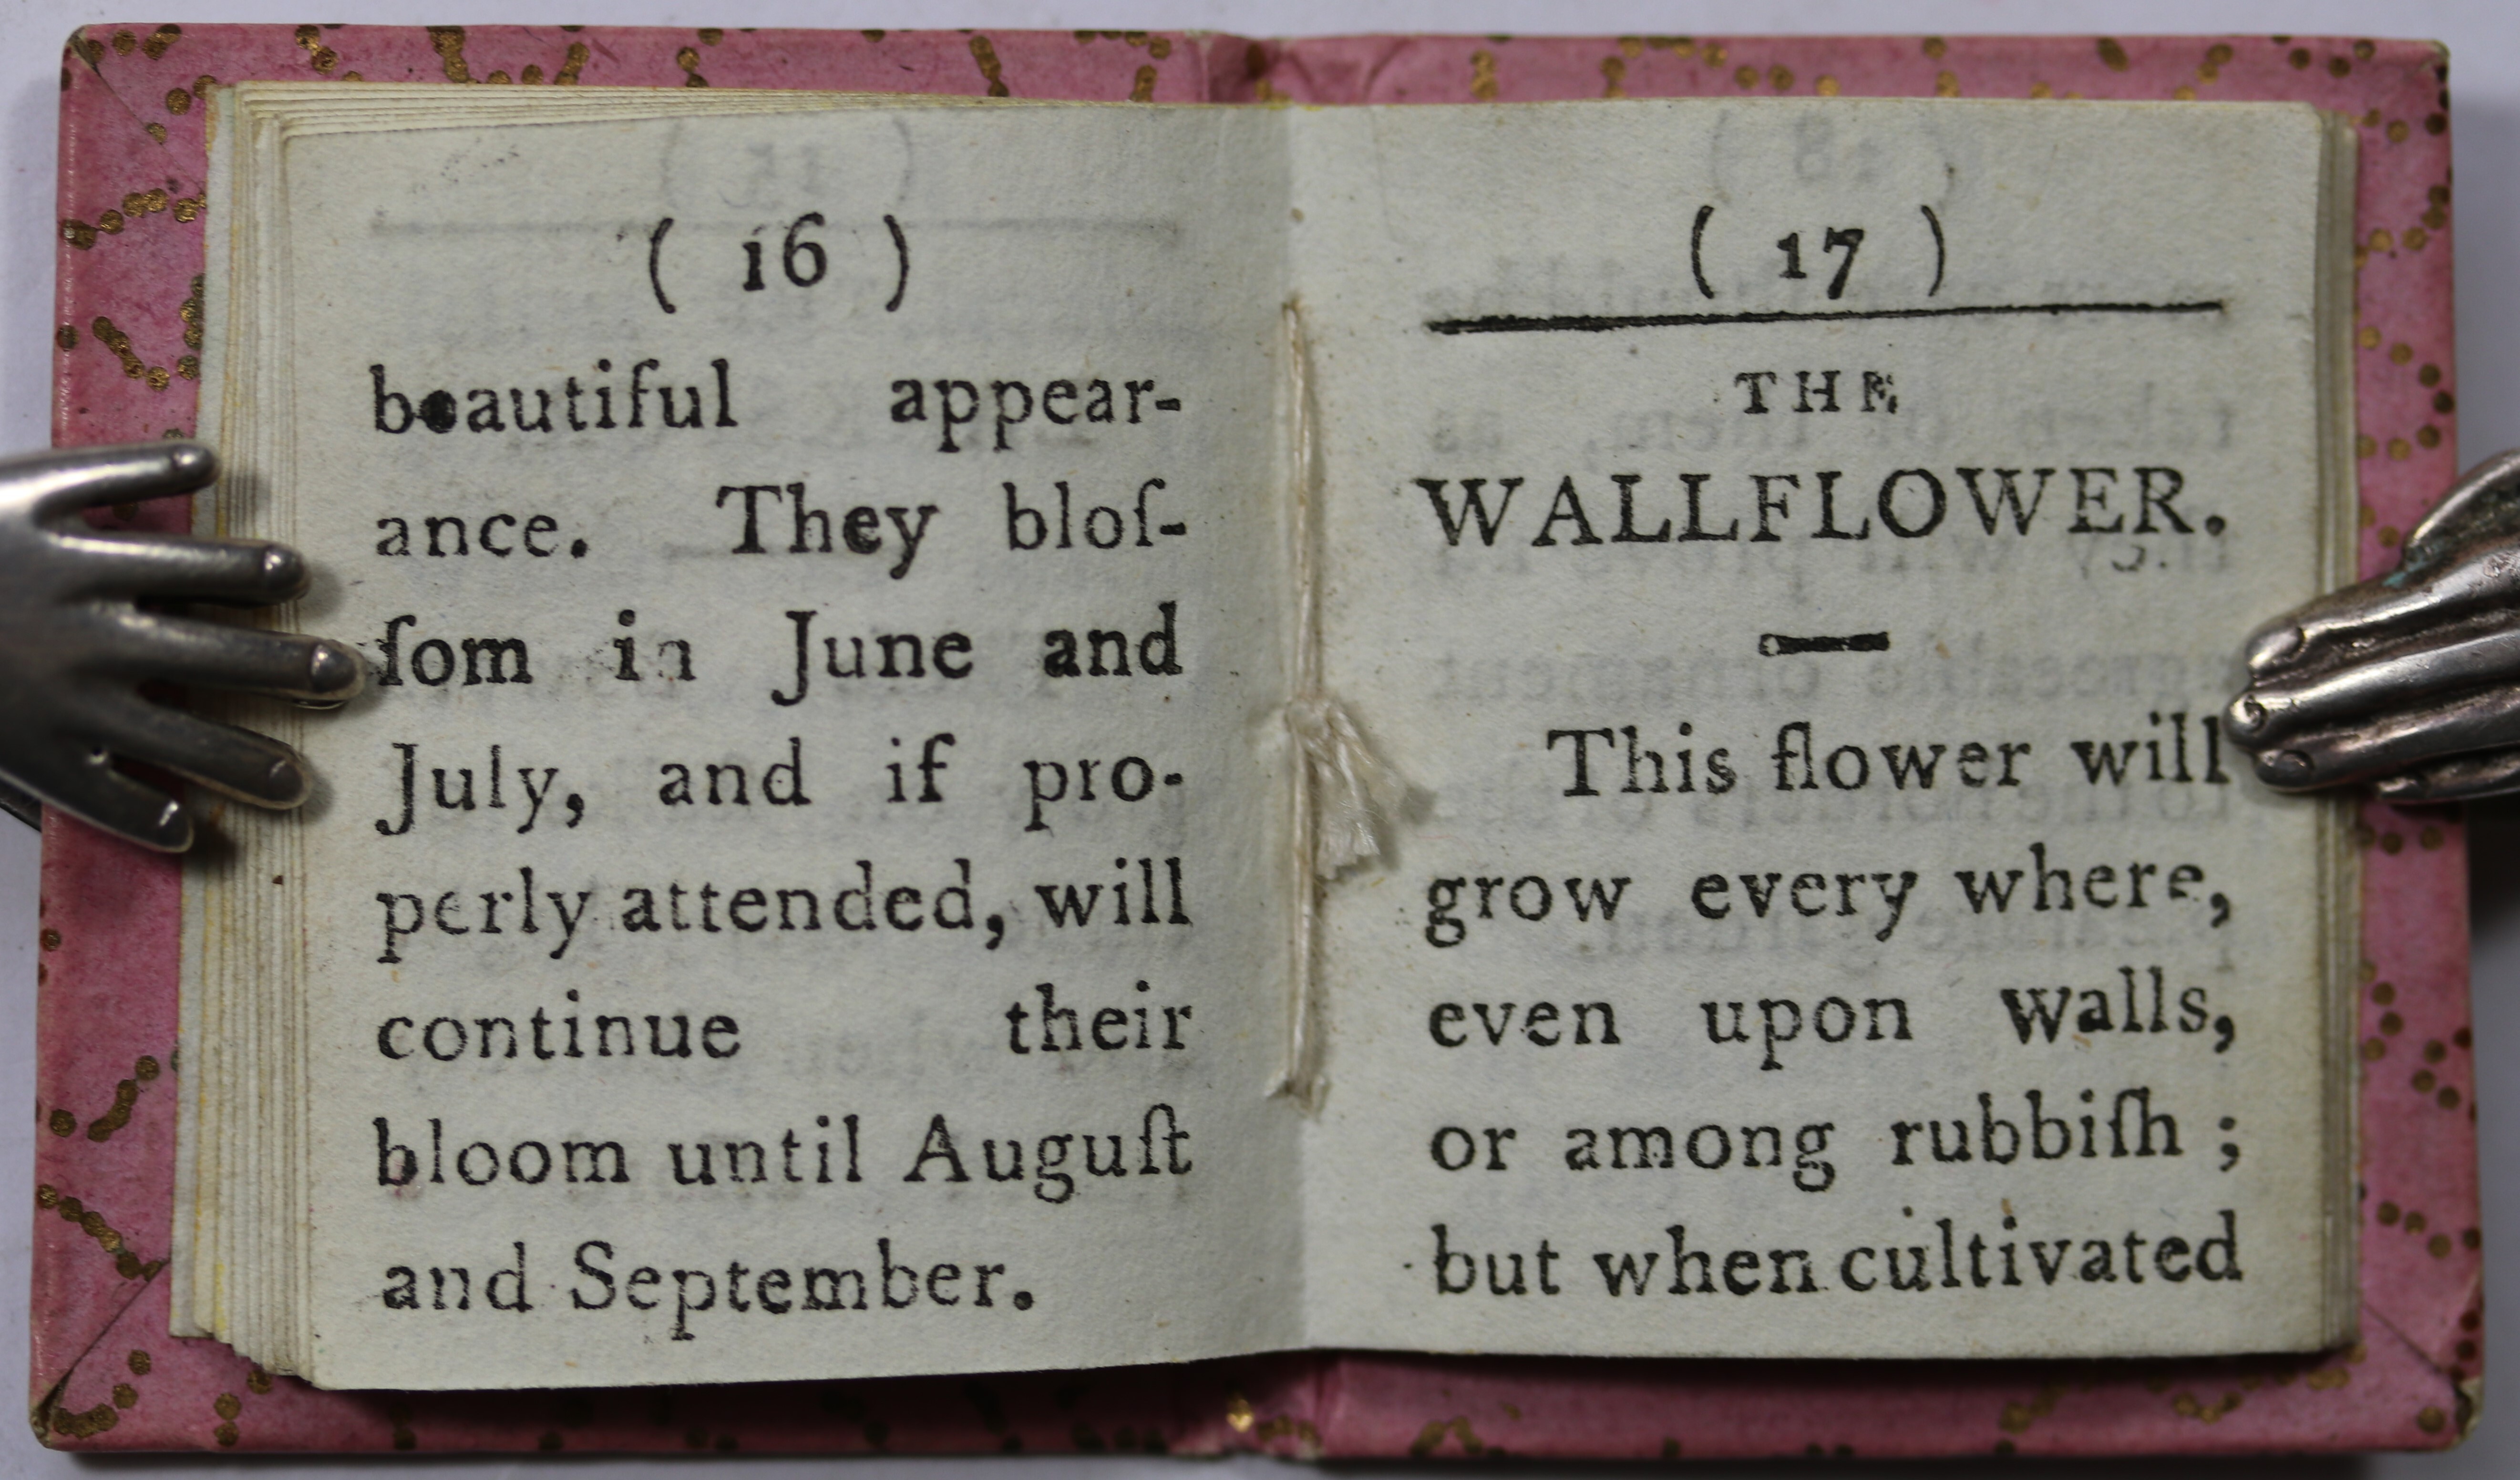 ( 16 )
beautiful appear-
ance. They bloſ-
ſom in June and
July, and if pro-
perly attended, will
continue their
bloom until Auguſt
and September.
( 17 )
THE
WALLFLOWER.
This flower will
grow every where,
even upon walls,
or among rubbiſh ;
but when cultivated